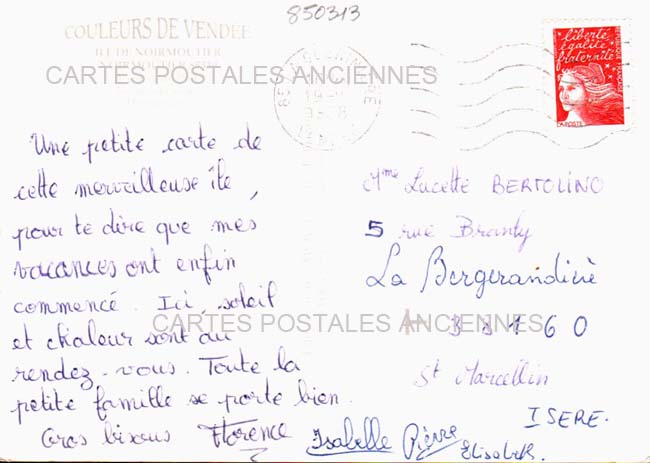 850313
COULEURS DE VENDÉE
ILE DE NOIRMOUTIER
liberté
égalité
fraternité
LA POSTE
CARTES POSTALES ANCIENNES
Une petite carte de
cette merveilleuse île,
pour te dire que mes
vacances ont enfin
commencé. Ici, soleil
et chaleur sont au
rendez-vous. Toute la
petite famille se porte bien.
Gros bisous Florence
Isabelle Pierre
Elisabeth
Mme Lucette BERTOLINO
5 rue Branly
La Bergerandière
38160
St Marcellin
ISERE.
CARTES POSTALES ANCIENNES